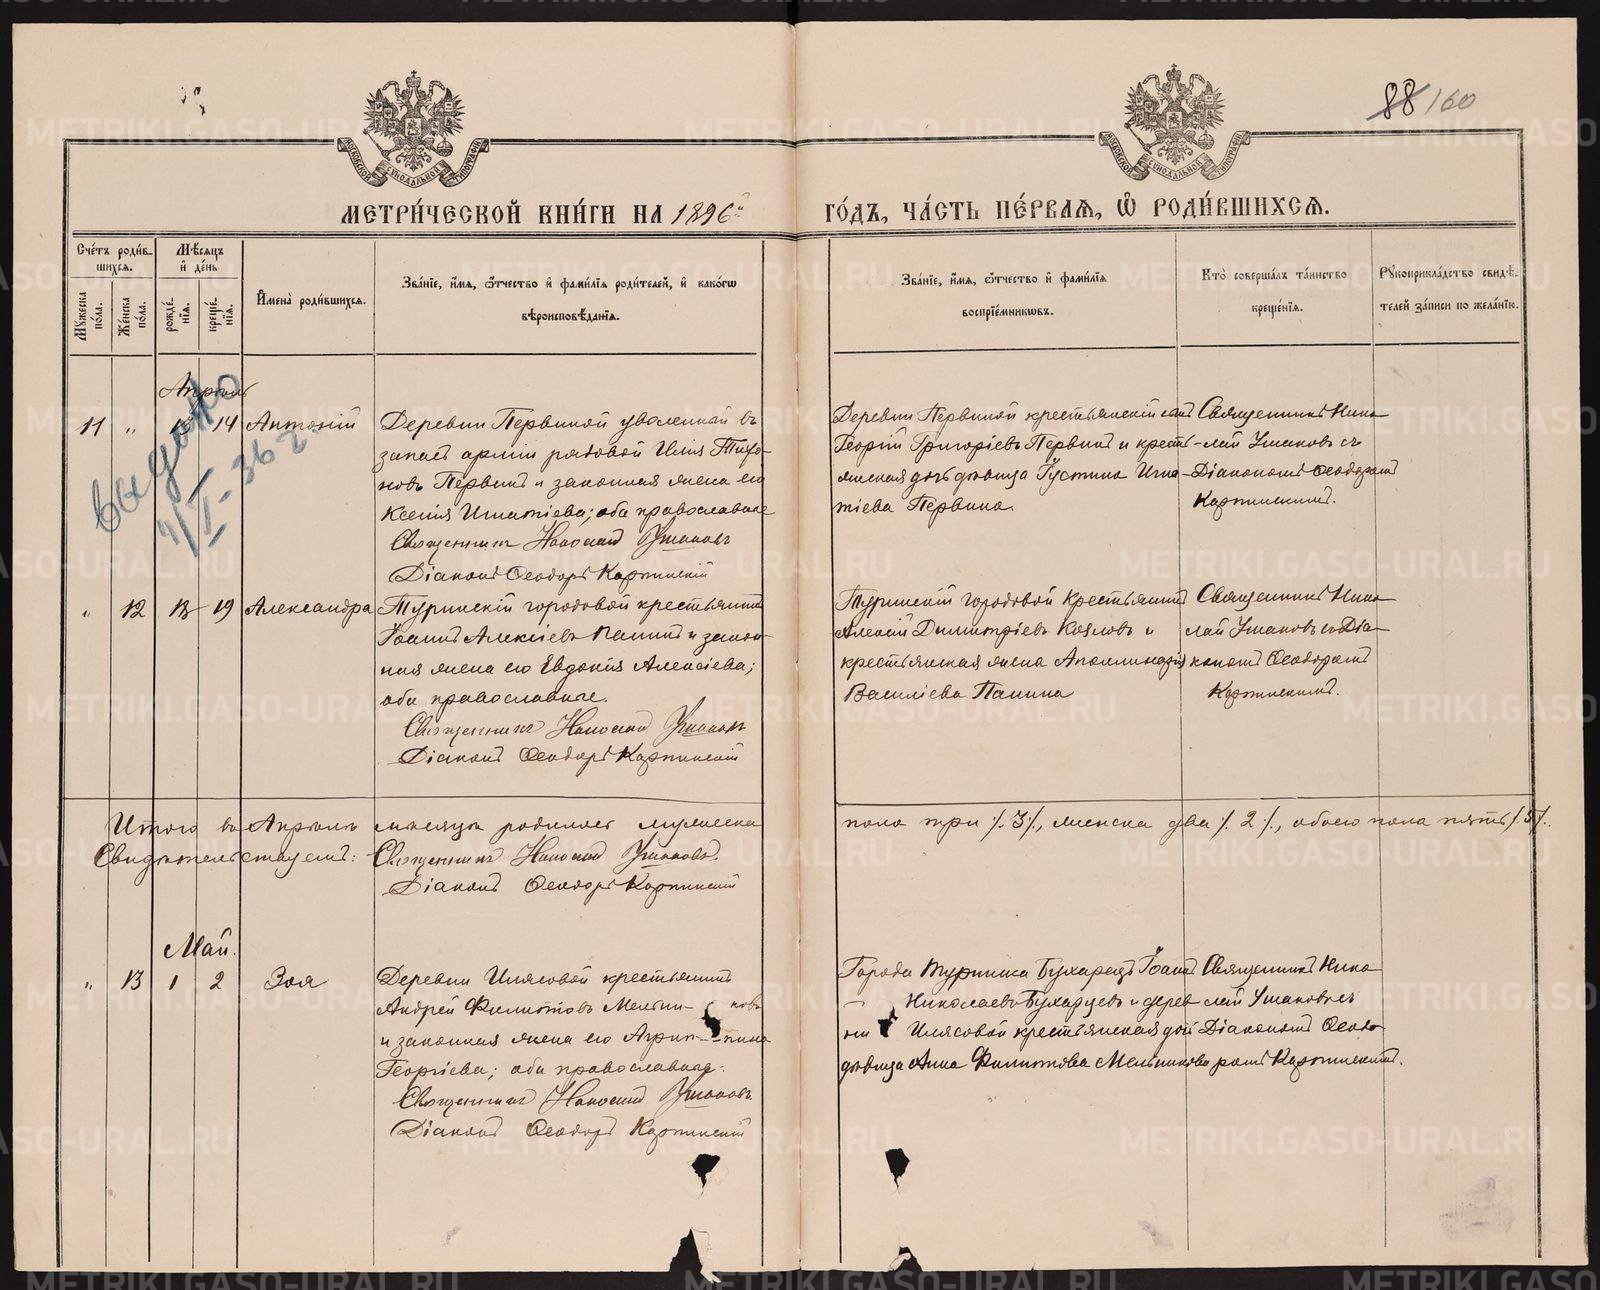 88 160
МОСКОВСКОЙ СУНОДАЛЬНОЙ ТИПОГРАФІИ
МОСКОВСКОЙ СУНОДАЛЬНОЙ ТИПОГРАФІИ
МЕТРИ́ЧЕСКОЙ КНИ́ГИ НА 1896й
ГО́ДЪ, ЧА́СТЬ ПЕ́РВАѦ, Ѡ РОДИ́ВШИХСѦ.
Сче́тъ роди́в-
шихсѧ.
Мꙋ́жеска по́ла.
Же́нска по́ла.
Мѣ́сѧцъ
и҆ де́нь
рожде́нїѧ.
креще́нїѧ.
И҆мена̀ роди́вшихсѧ.
Зва́нїе, и҆́мѧ, ѻ҆́тчество и҆ фами́лїѧ роди́телей, и҆ како́гѡ
вѣроисповѣ́данїѧ.
Зва́нїе, и҆́мѧ, ѻ҆́тчество и҆ фами́лїѧ
воспрїе́мникѡвъ.
Кто̀ соверша́лъ та́инство
креще́нїѧ.
Рꙋкоприкла́дство свидѣ́-
телей за́писи по жела́нїю.
Апрѣль
выдано
4/I-36 г.
11 „ 13 14 Антоній
Деревни Первиной уволенный въ
запасъ арміи рядовой Илія Тихо-
новъ Первинъ и законная жена его
Ксенія Игнатіева; оба православные
Священникъ Николай Ушаковъ
Діаконъ Ѳеодоръ Карпинскій
Деревни Первиной крестьянскій сынъ
Георгій Григоріевъ Первинъ и кресть-
янская дочь дѣвица Іустина Игна-
тіева Первина.
Священникъ Нико-
лай Ушаковъ съ
Діакономъ Ѳеодоромъ
Карпинскимъ.
„ 12 18 19 Александра
Туринскій городовой крестьянинъ
Іоаннъ Алексіевъ Панинъ и закон-
ная жена его Евдокія Алексіева;
оба православные.
Священникъ Николай Ушаковъ
Діаконъ Ѳеодоръ Карпинскій
Туринскій городовой крестьянинъ
Алексій Димитріевъ Козловъ и
крестьянская жена Аполлинарія
Василіева Панина
Священникъ Нико-
лай Ушаковъ съ Діа-
кономъ Ѳеодоромъ
Карпинскимъ.
Итого въ Апрѣлѣ мѣсяцѣ родилось мужеска
пола три /.3/., женска два /.2/., обоего пола пять /.5/.
Свидѣтельствуемъ: Священникъ Николай Ушаковъ
Діаконъ Ѳеодоръ Карпинскій
Май.
„ 13 1 2 Зоя
Деревни Илясовой крестьянинъ
Андрей Филиповъ Мельни- ковъ
и законная жена его Агрип- пина
Георгіева; оба православные.
Священникъ Николай Ушаковъ
Діаконъ Ѳеодоръ Карпинскій
Города Туринска Бухарецъ Іоаннъ
Николаевъ Бухарцевъ и дерев
ни Илясовой крестьянская дочь
дѣвица Анна Филипова Мельникова
Священникъ Нико-
лай Ушаковъ съ
Діакономъ Ѳеодо-
ромъ Карпинскимъ.
METRIKI.GASO-URAL.RU